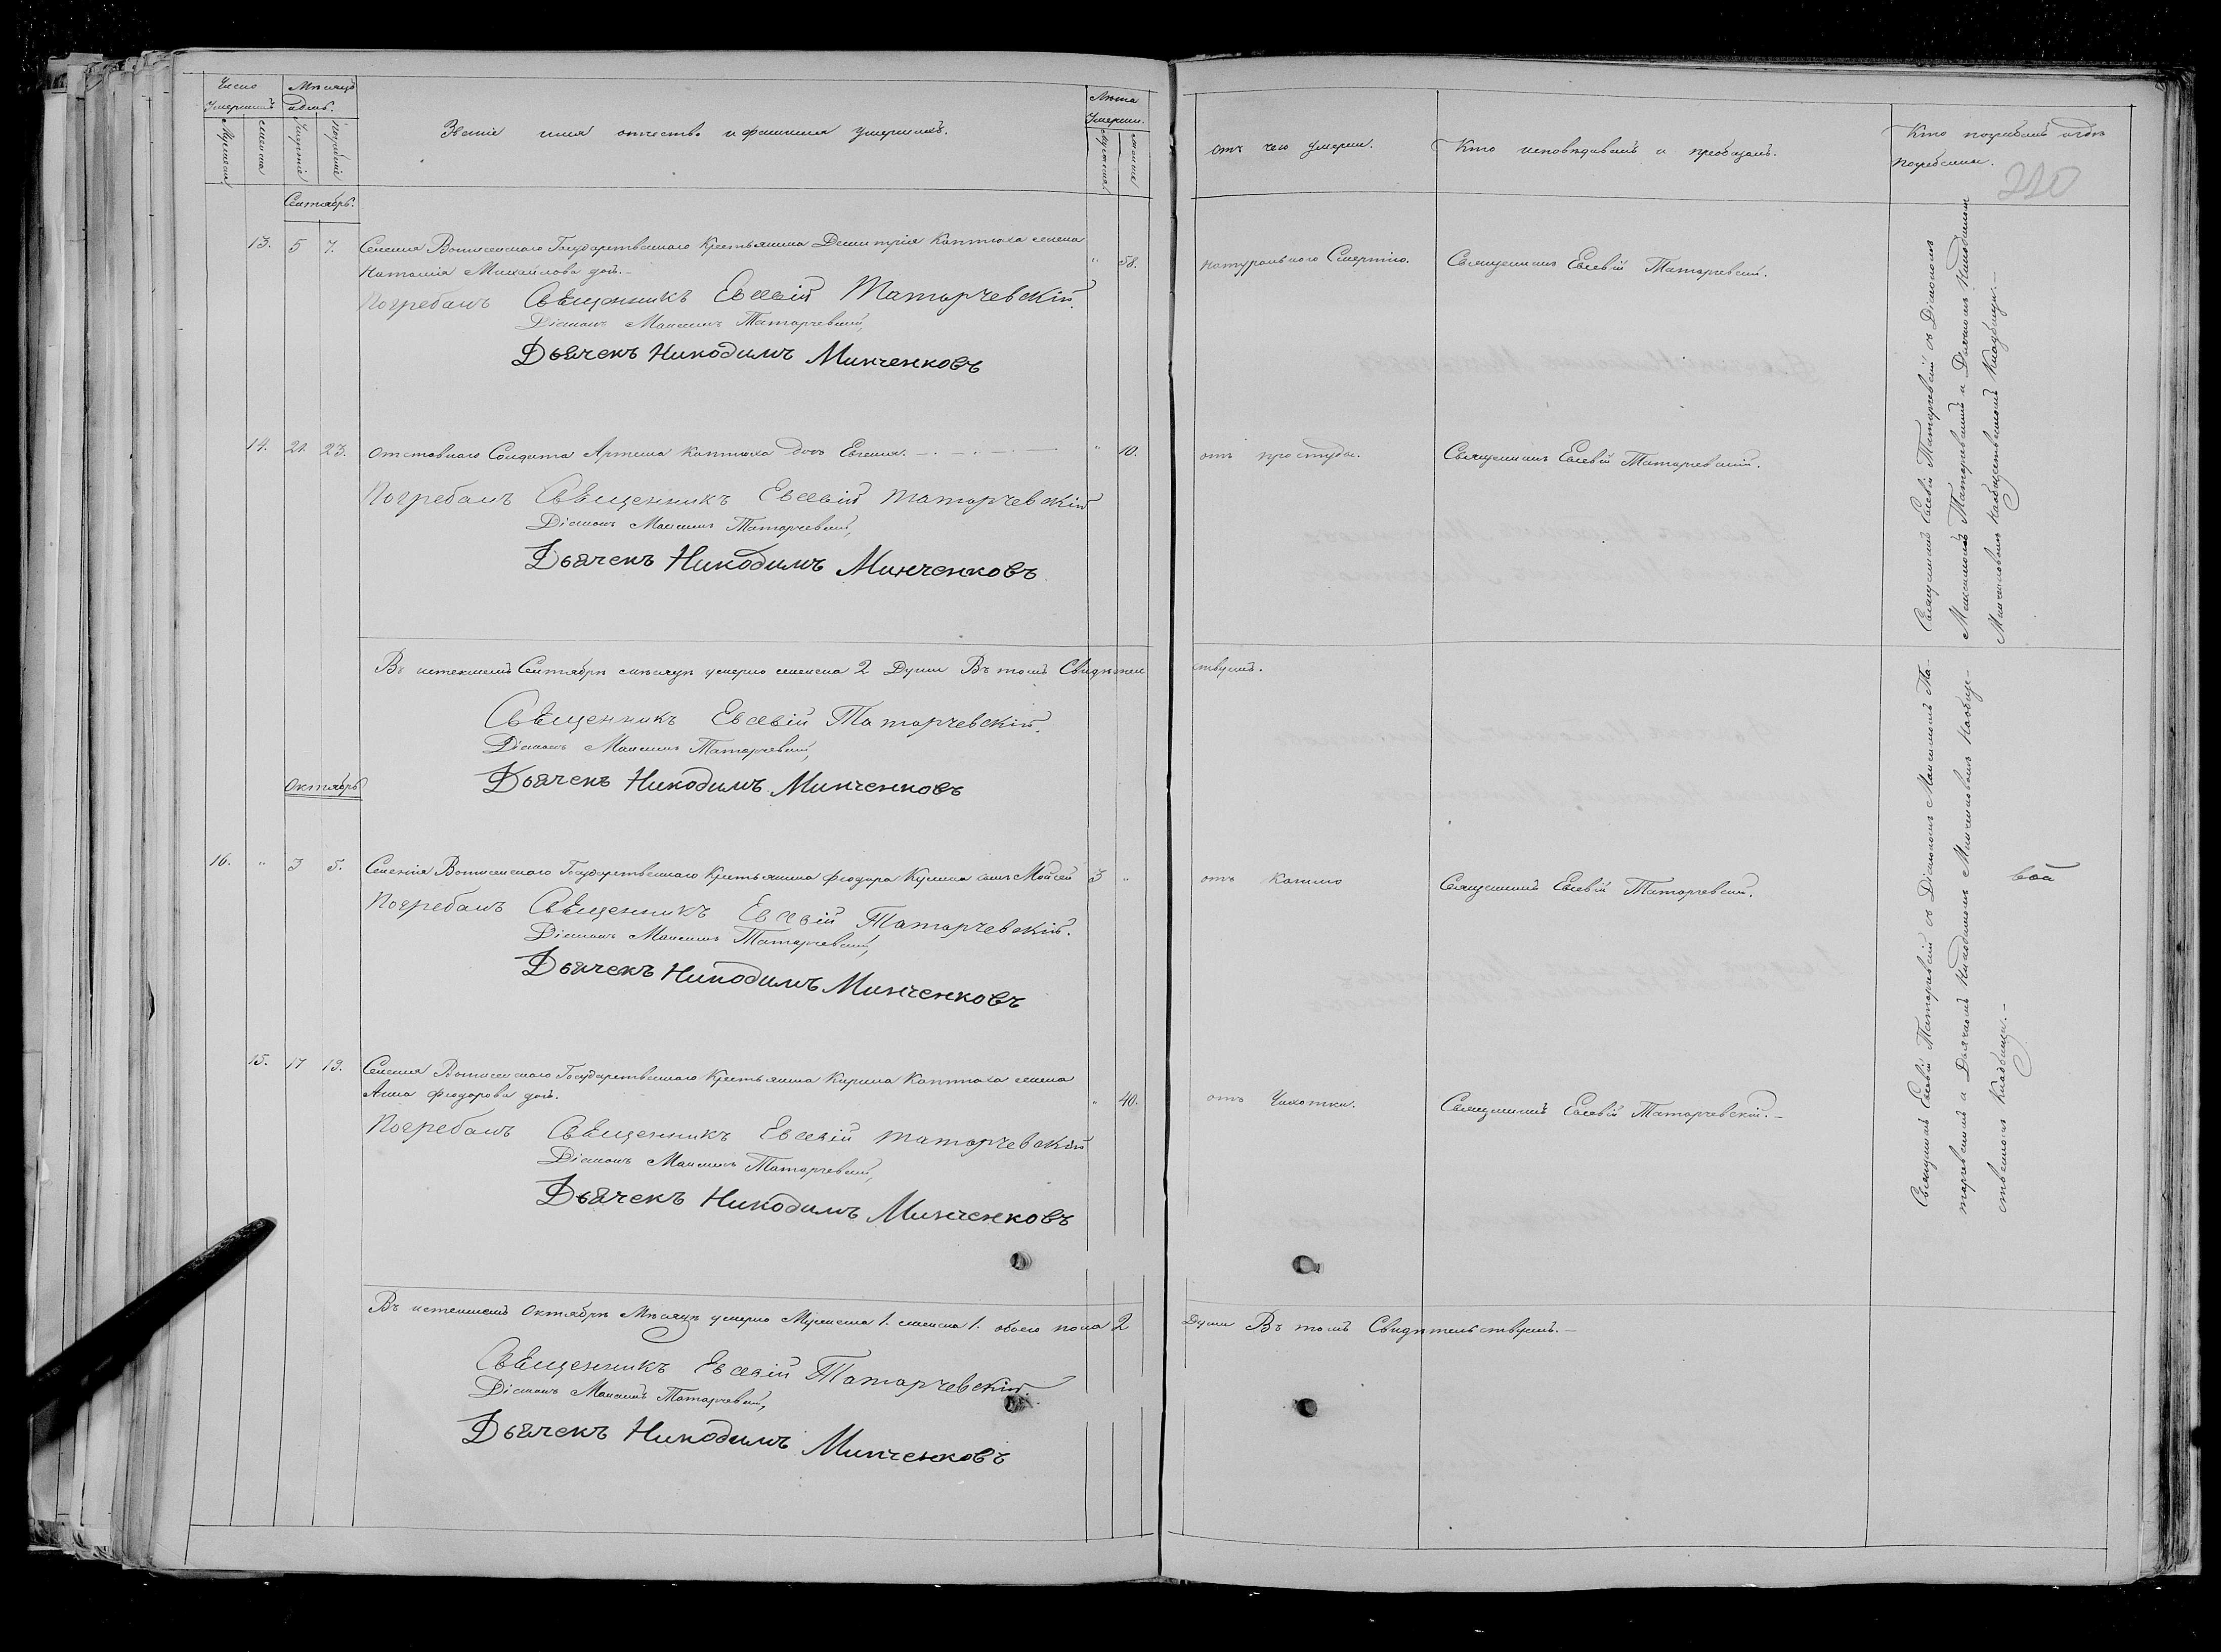 Число Умершихъ
Мужеска
Женска
Мѣсяцъ и день.
Смертіе
погребеніе
Званіе имя отчество и фамилія умершихъ.
Лѣта Умерши.
Мужеска
Женска
отъ чего умерли.
Кто исповѣдывалъ и пріобщалъ.
Кто погребалъ и гдѣ
погребены.
220
Сентябрь.
13. 5 7. Селенія Государственнаго Крестьянина Димитрія Каптюха жена
Наталія Михайлова дочь. „ 58. Натуральною Смертію. Священникъ Евсевій Татарчевскій.
Погребалъ Свѣщенникъ Евсевій Татарчевскій.
Діаконъ Максимъ Татарчевскій,
Дьячекъ Никодимъ Минченковъ
14. 21. 23. Отставнаго Солдата Артема Каптюха дочь Евгенія. „ 10. отъ простуды. Священникъ Евсевій Татарчевскій.
Погребалъ Свѣщенникъ Евсевій Татарчевскій
Діаконъ Максимъ Татарчевскій,
Дьячекъ Никодимъ Минченковъ
Священникъ Евсевій Татарчевскій съ Діакономъ
Максимомъ Татарчевскимъ и Дьячкомъ Никодимомъ
Минченковымъ на общественномъ Кладбищи.
Въ истекшемъ Сентябрѣ мѣсяцѣ умерло женска 2 Души Въ томъ Свидѣтельствуемъ.
Свѣщенникъ Евсевій Татарчевскій.
Діаконъ Максимъ Татарчевскій,
Дьячекъ Никодимъ Минченковъ
Октябрь
16. „ 3 5. Селенія Государственнаго Крестьянина Феодора сынъ Мойсей 3 „ отъ Священникъ Евсевій Татарчевскій.
Погребалъ Свѣщенникъ Евсевій Татарчевскій.
Діаконъ Максимъ Татарчевскій,
Дьячекъ Никодимъ Минченковъ
15. 17 19. Селенія Государственнаго Крестьянина Кирила Каптюха жена
Анна Феодорова дочь. „ 40. отъ Чахотки. Священникъ Евсевій Татарчевскій.
Погребалъ Свѣщенникъ Евсевій Татарчевскій
Діаконъ Максимъ Татарчевскій,
Дьячекъ Никодимъ Минченковъ
Священникъ Евсевій Татарчевскій съ Діакономъ Максимомъ Та-
тарчевскимъ и Дьячкомъ Никодимомъ Минченковымъ на обще-
ственномъ Кладбищи.
Въ истекшемъ Октябрѣ Мѣсяцѣ умерло Мужеска 1. женска 1. обоего пола 2 Души Въ томъ Свидѣтельствуемъ.
Свѣщенникъ Евсевій Татарчевскій.
Діаконъ Максимъ Татарчевскій,
Дьячекъ Никодимъ Минченковъ